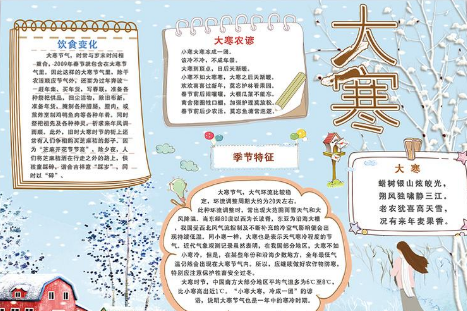 饮食变化
大寒节气,时常与岁末时间相
重合。2009年春节就包含在大寒节
气里。因此这样的大寒节气里,除干
农活顺应节气外,还要为过年奔波一
一赶年集、买年货、写春联,准备各
种祭祀供品,扫尘洁物,除旧布新,
准备年货,腌制各种腊肠、腊肉,或
煎炸烹制鸡鸭鱼肉等各种年肴。同时
祭祀祖先及各种神灵,祈求来年风调
雨顺。此外,旧时大寒时节的街上还
常有人们争相购买芝麻秸的影子。因
为“芝麻开花节节高”,除夕夜,人
们将芝麻秸洒在行走之外的路上,供
孩童踩碎,谐音吉祥意“踩岁”,同
时以“碎”、
大寒农谚
小寒大寒冻成一团。
该冷不冷,不成年景。
大寒到顶点,日后天渐暖。
小寒不如大寒寒,大寒之后天渐暖。
欢欢喜喜过新年,莫忘护林看果园。
春节前后闹嚷嚷,大棚瓜菜不能忘。
禽舍猪圈牲口棚,加强护理莫放松。
春节前后少农活,莫忘鱼塘常巡逻。
季节特征
大寒节气,大气环流比较稳
定,环流调整周期大约为20天左右。
此种环流调整时,常出现大范围雨雪天气和大
风降温。当东经80度以西为长波脊,东亚为沿海大槽
我国受西北风气流控制及不断补充的冷空气影响便会出
现持续低温。同小寒一样,大寒也是表示天气寒冷程度的节
气。近代气象观测记录虽然表明,在我国部分地区,大寒不如
小寒冷,但是,在某些年份和沿海少数地方,全年最低气
温仍然会出现在大寒节气内。所以,应继续做好农作物防寒,
特别应注意保护牲畜安全过冬。
大寒时节,中国南方大部分地区平均气温多为6℃至8℃,
比小寒高出近1℃。“小寒大寒,冻成一团”的谚
语,说明大寒节气也是一年中的寒冷时期。
大寒
大 寒
蜡树银山炫皎光,
朔风独啸静三江。
老农犹喜高天雪,
况有来年麦果香。